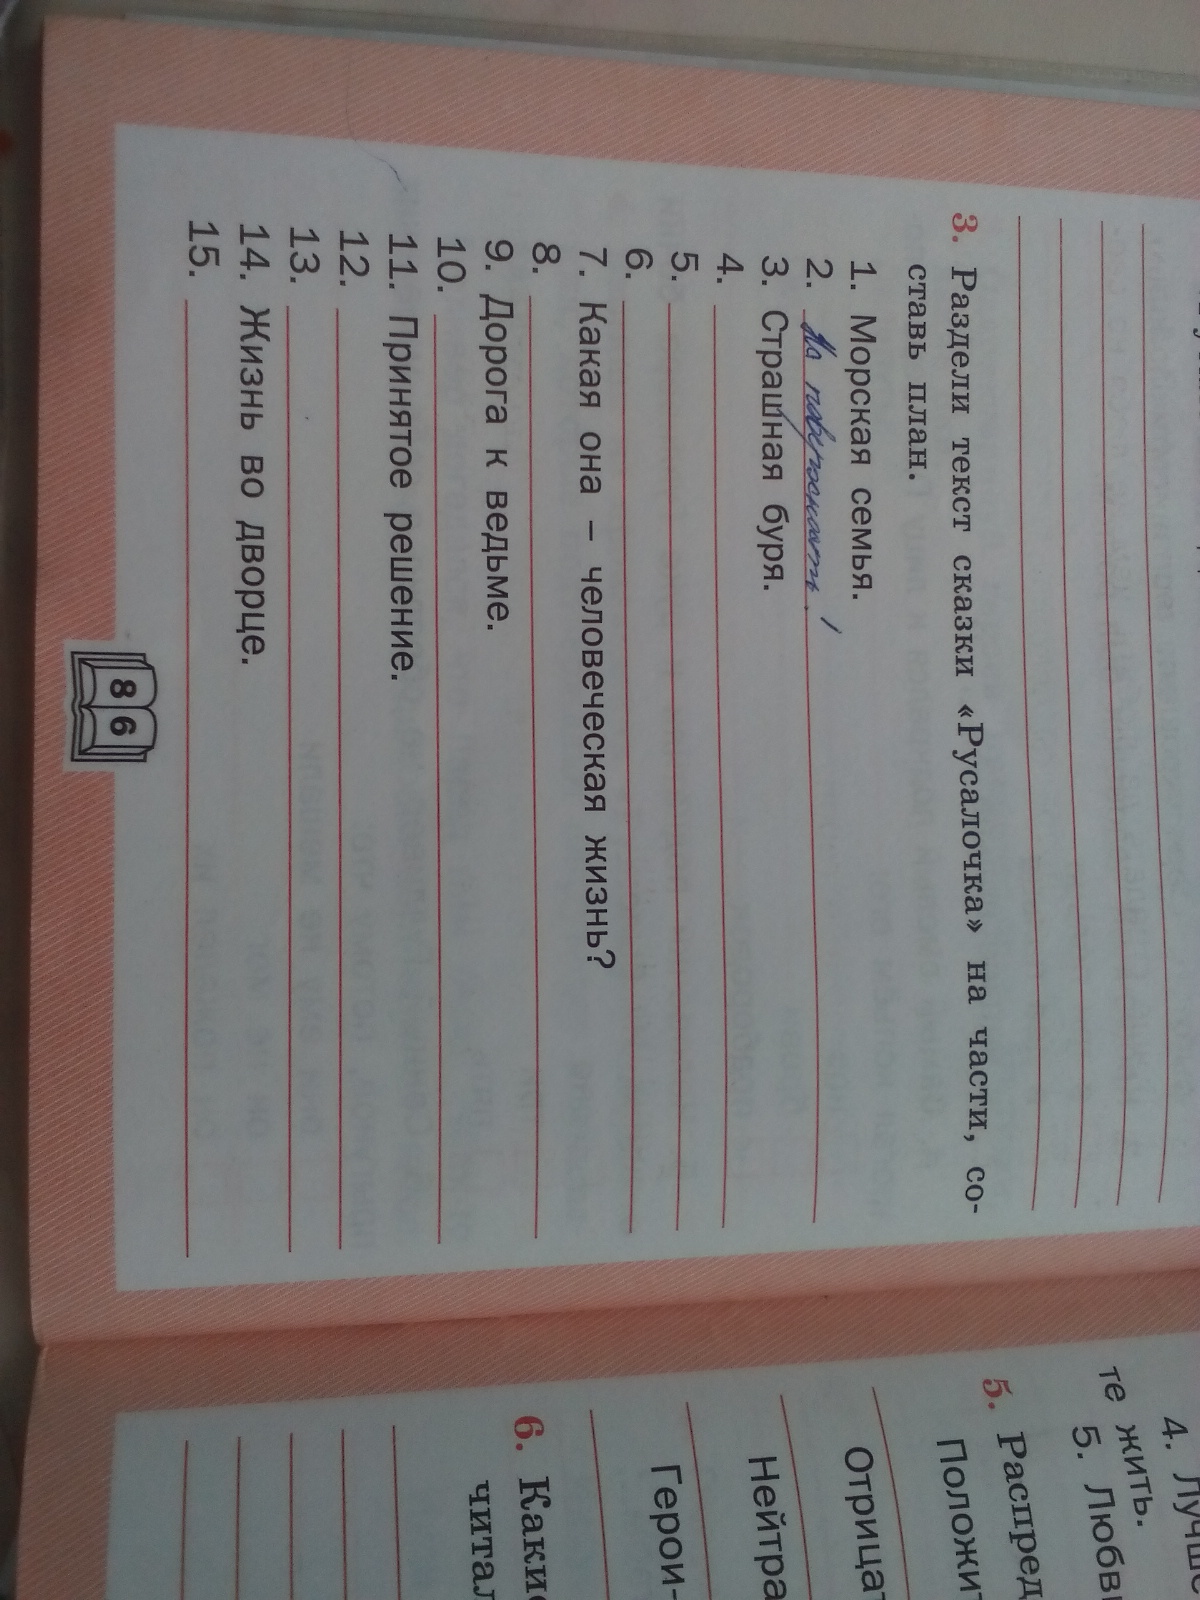 3. Раздели текст сказки «Русалочка» на части, со-
ставь план.
1. Морская семья.
2. На поверхность.
3. Страшная буря.
4.
5.
6.
7. Какая она – человеческая жизнь?
8.
9. Дорога к ведьме.
10.
11. Принятое решение.
12.
13.
14. Жизнь во дворце.
15.
86
4.
те жить.
5.
5.
6.
Герои-